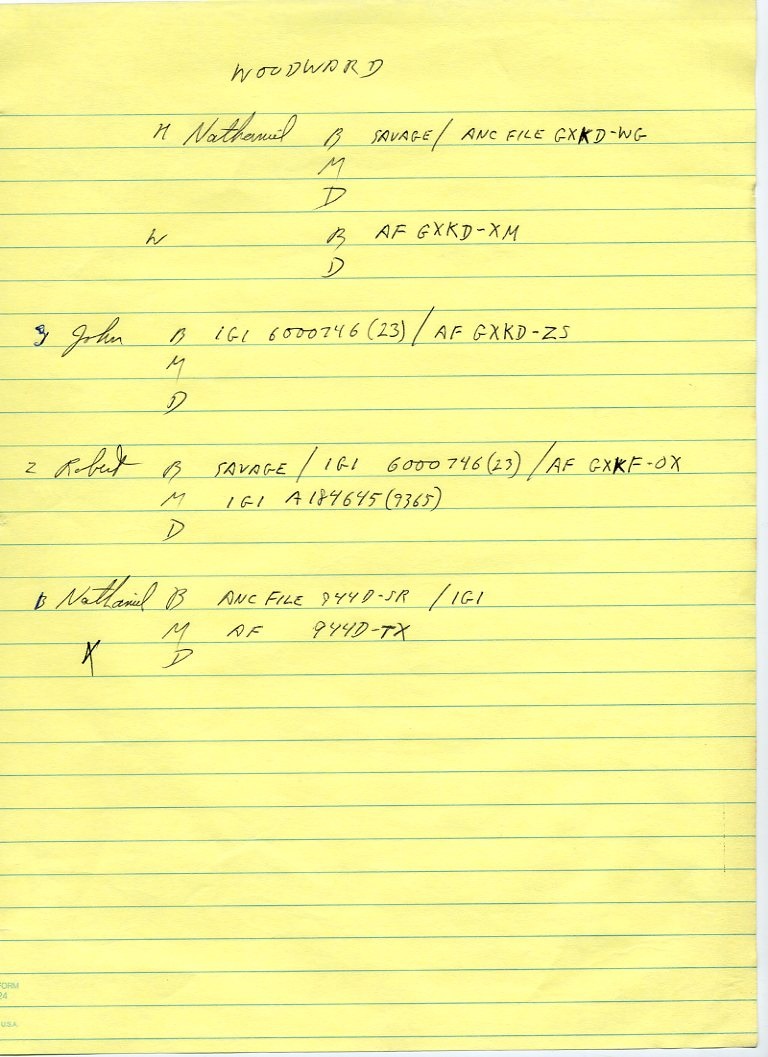 WOODWARD
H Nathaniel B SAVAGE / ANC FILE GXKD-WG
M
D
W B AF GXKD-XM
D
3 John B IGI 6000746 (23) / AF GXKD-ZS
M
D
2 Robert B SAVAGE / IGI 6000746 (23) / AF GXKF-0X
M IGI A184645 (9365)
D
Nathaniel B ANC FILE 944D-SR / IGI
M AF 944D-TX
X D
FORM
24
U.S.A.